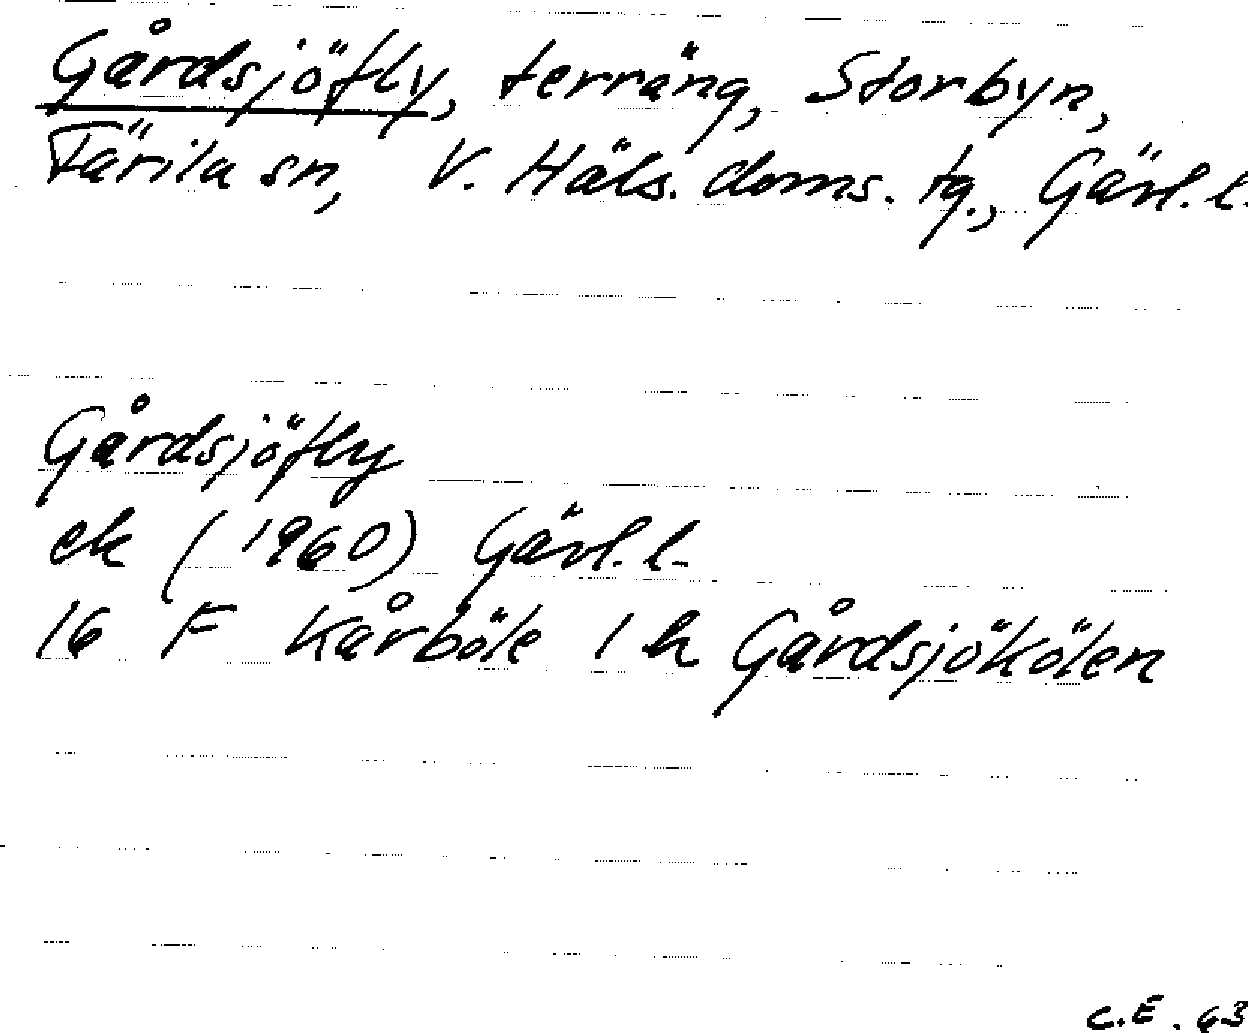 Gårdsjöfly, terräng, Storbyn,
Färila sn, V. Häls. doms. tg., Gävl. l.
Gårdsjöfly
ek (1960) Gävl. l.
16 F Kårböle 1 h Gårdsjökölen
C.E. 63